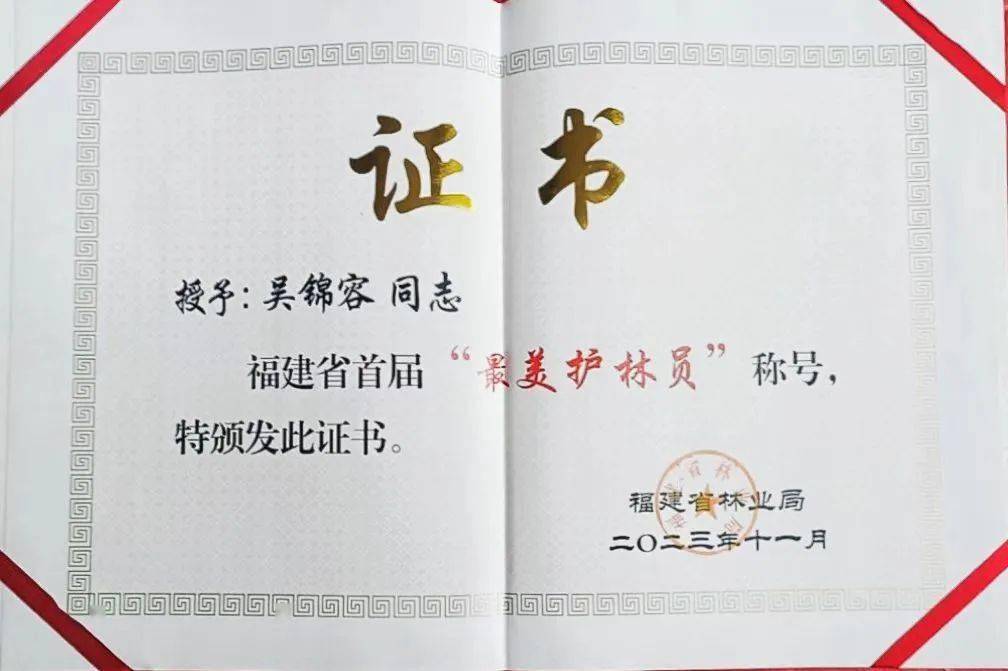 证书
授予：吴锦容 同志
福建省首届“最美护林员”称号，
特颁发此证书。
福建省林业局
二〇二三年十一月